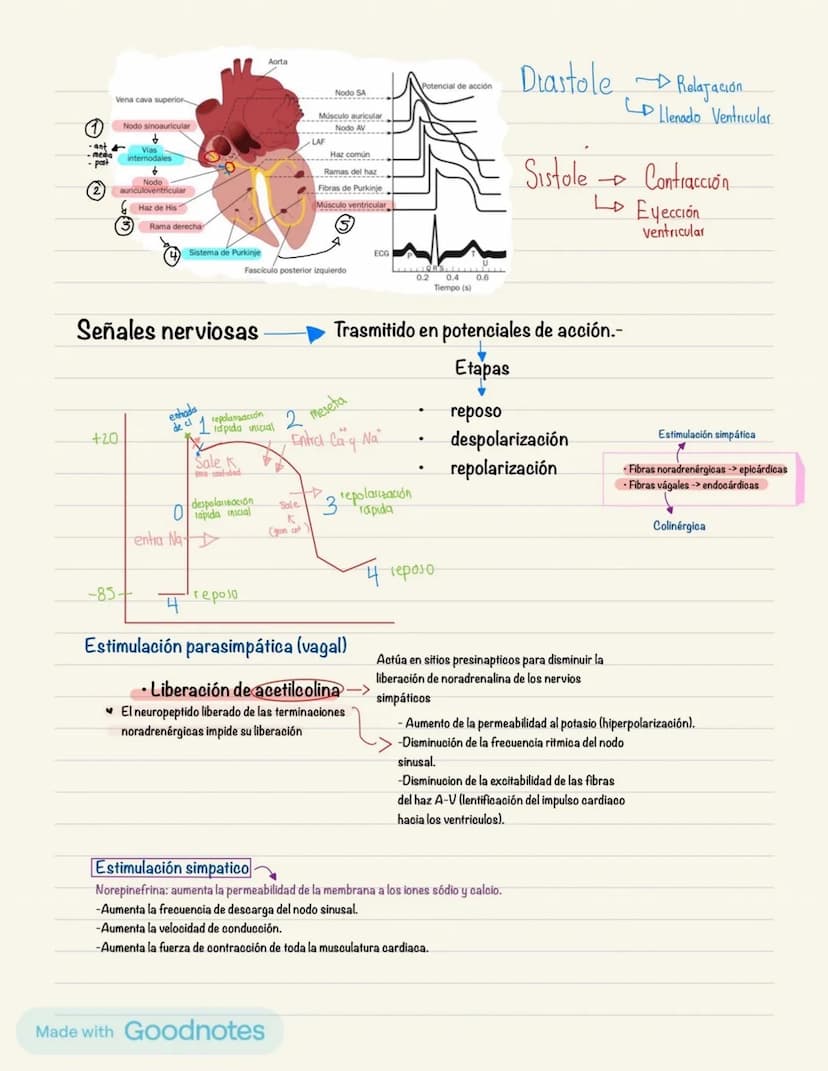 Aorta
Vena cava superior
Nodo sinoauricular
Vías
internodales
Nodo
auriculoventricular
Haz de His
Rama derecha
Sistema de Purkinje
Fascículo posterior izquierdo
1
- ant
- media
- post
2
3
4
5
Nodo SA
Músculo auricular
Nodo AV
LAF
Haz común
Ramas del haz
Fibras de Purkinje
Músculo ventricular
ECG
Potencial de acción
P
QRS
T
U
0.2 0.4 0.6
Tiempo (s)
Diastole
Relajación
Llenado Ventricular
Sistole
Contracción
Eyección
ventricular
Señales nerviosas
Trasmitido en potenciales de acción.-
Etapas
• reposo
• despolarización
• repolarización
+20
-85
entrada
de cl
1 repolarización
rápida inicial
2 meseta
Entra Ca++ y Na+
Sale K
0 despolarización
rápida inicial
entra Na+
Sale
K
3 repolarización
rápida
4 reposo
4 reposo
Estimulación simpática
• Fibras noradrenérgicas -> epicárdicas
• Fibras vágales -> endocárdicas
Colinérgica
Estimulación parasimpática (vagal)
• Liberación de acetilcolina
El neuropeptido liberado de las terminaciones
noradrenérgicas impide su liberación
Actúa en sitios presinapticos para disminuir la
liberación de noradrenalina de los nervios
simpáticos
- Aumento de la permeabilidad al potasio (hiperpolarización).
-Disminución de la frecuencia ritmica del nodo
sinusal.
-Disminucion de la excitabilidad de las fibras
del haz A-V (lentificación del impulso cardiaco
hacia los ventriculos).
Estimulación simpatico
Norepinefrina: aumenta la permeabilidad de la membrana a los iones sódio y calcio.
-Aumenta la frecuencia de descarga del nodo sinusal.
-Aumenta la velocidad de conducción.
-Aumenta la fuerza de contracción de toda la musculatura cardiaca.
Made with Goodnotes